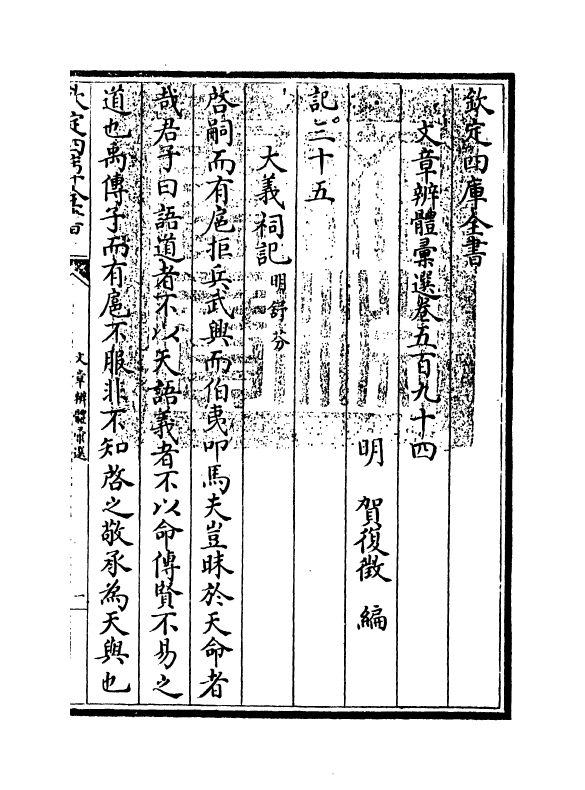 欽定四庫全書
文章辨體彚選卷五百九十四
明 賀復徵 編
記三十五
大義祠記明舒芬
啓嗣而有扈拒兵武興而伯夷叩馬夫豈昧於天命者
哉君子曰語道者不以天語義者不以命傳賢不易之
道也禹傳子而有扈不服非不知啓之敬承為天與也
欽定四庫全書
文章辨體彚選
一